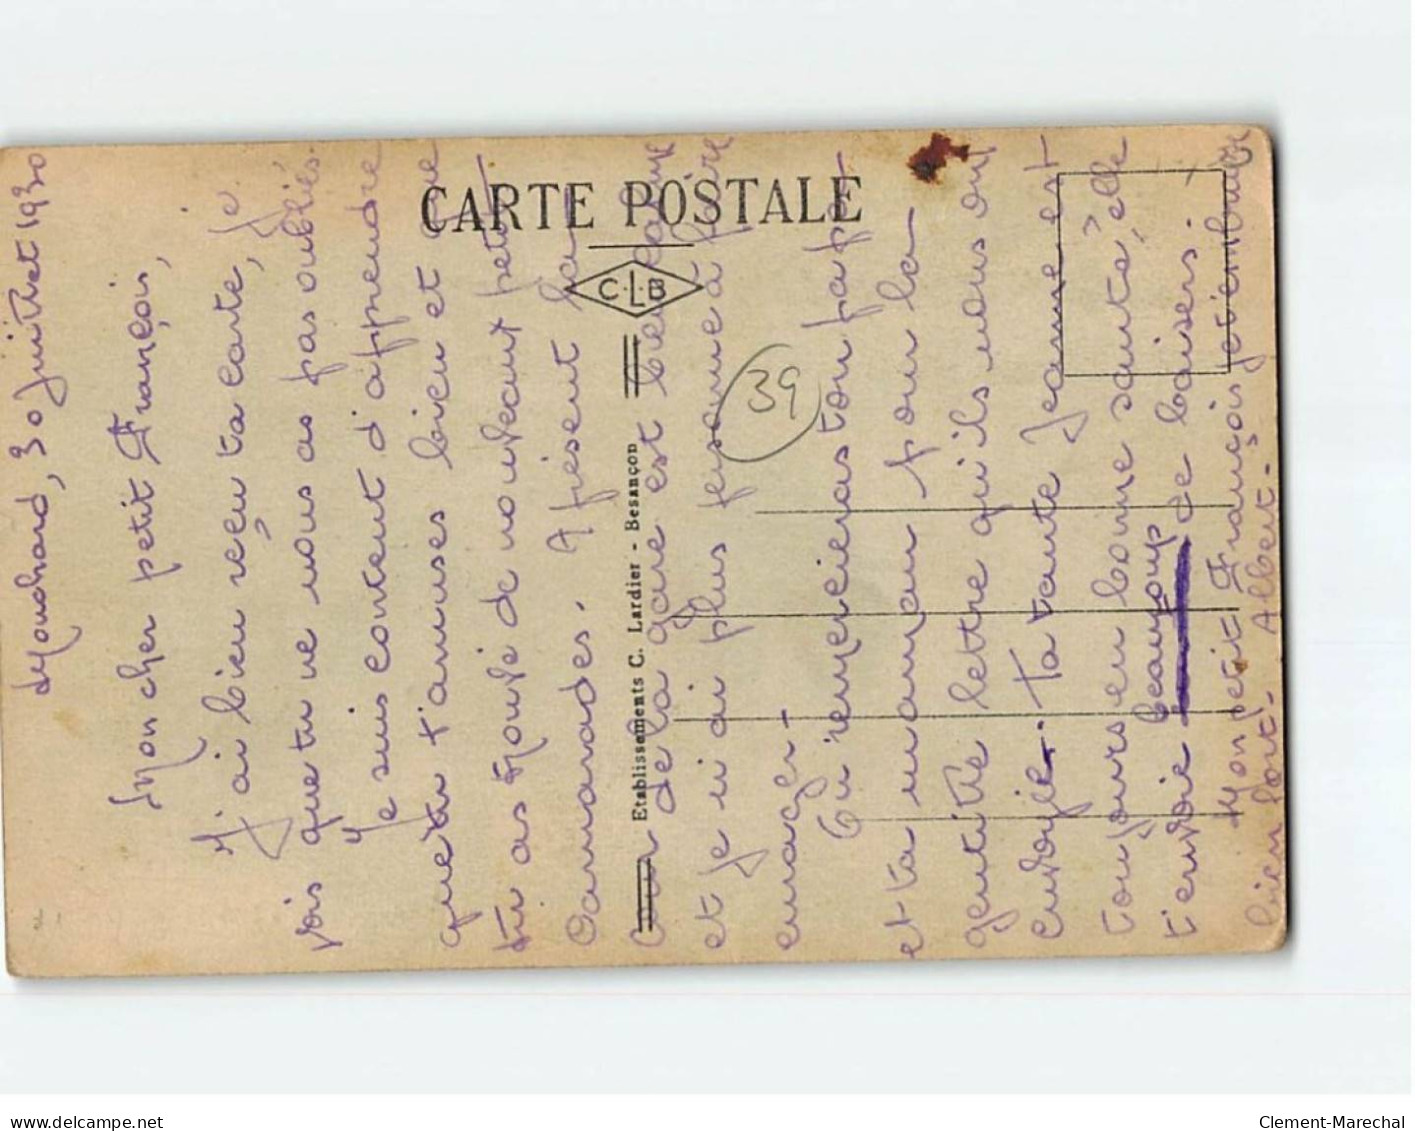 Mouchard, 30 Juillet 1930
Mon cher petit François,
J'ai bien reçu ta carte, je
vois que tu ne nous as pas oubliés.
Je suis content d'apprendre
que tu t'amuses bien et que
tu as trouvé de nouveaux petits
camarades. A présent la
de la gare est bien calme
et je n'ai plus personne à faire
enrager -
Tu remercieras ton papa
et ta maman pour la
gentille lettre qu'ils nous ont
envoyée. Ta tante Jeanne est
toujours en bonne santé, elle
t'envoie beaucoup de baisers.
Mon petit François je t'embrasse
bien fort - Albert -
CARTE POSTALE
C.L.B
Etablissements C. Lardier - Besançon
39
delcampe.net
Clement-Marechal